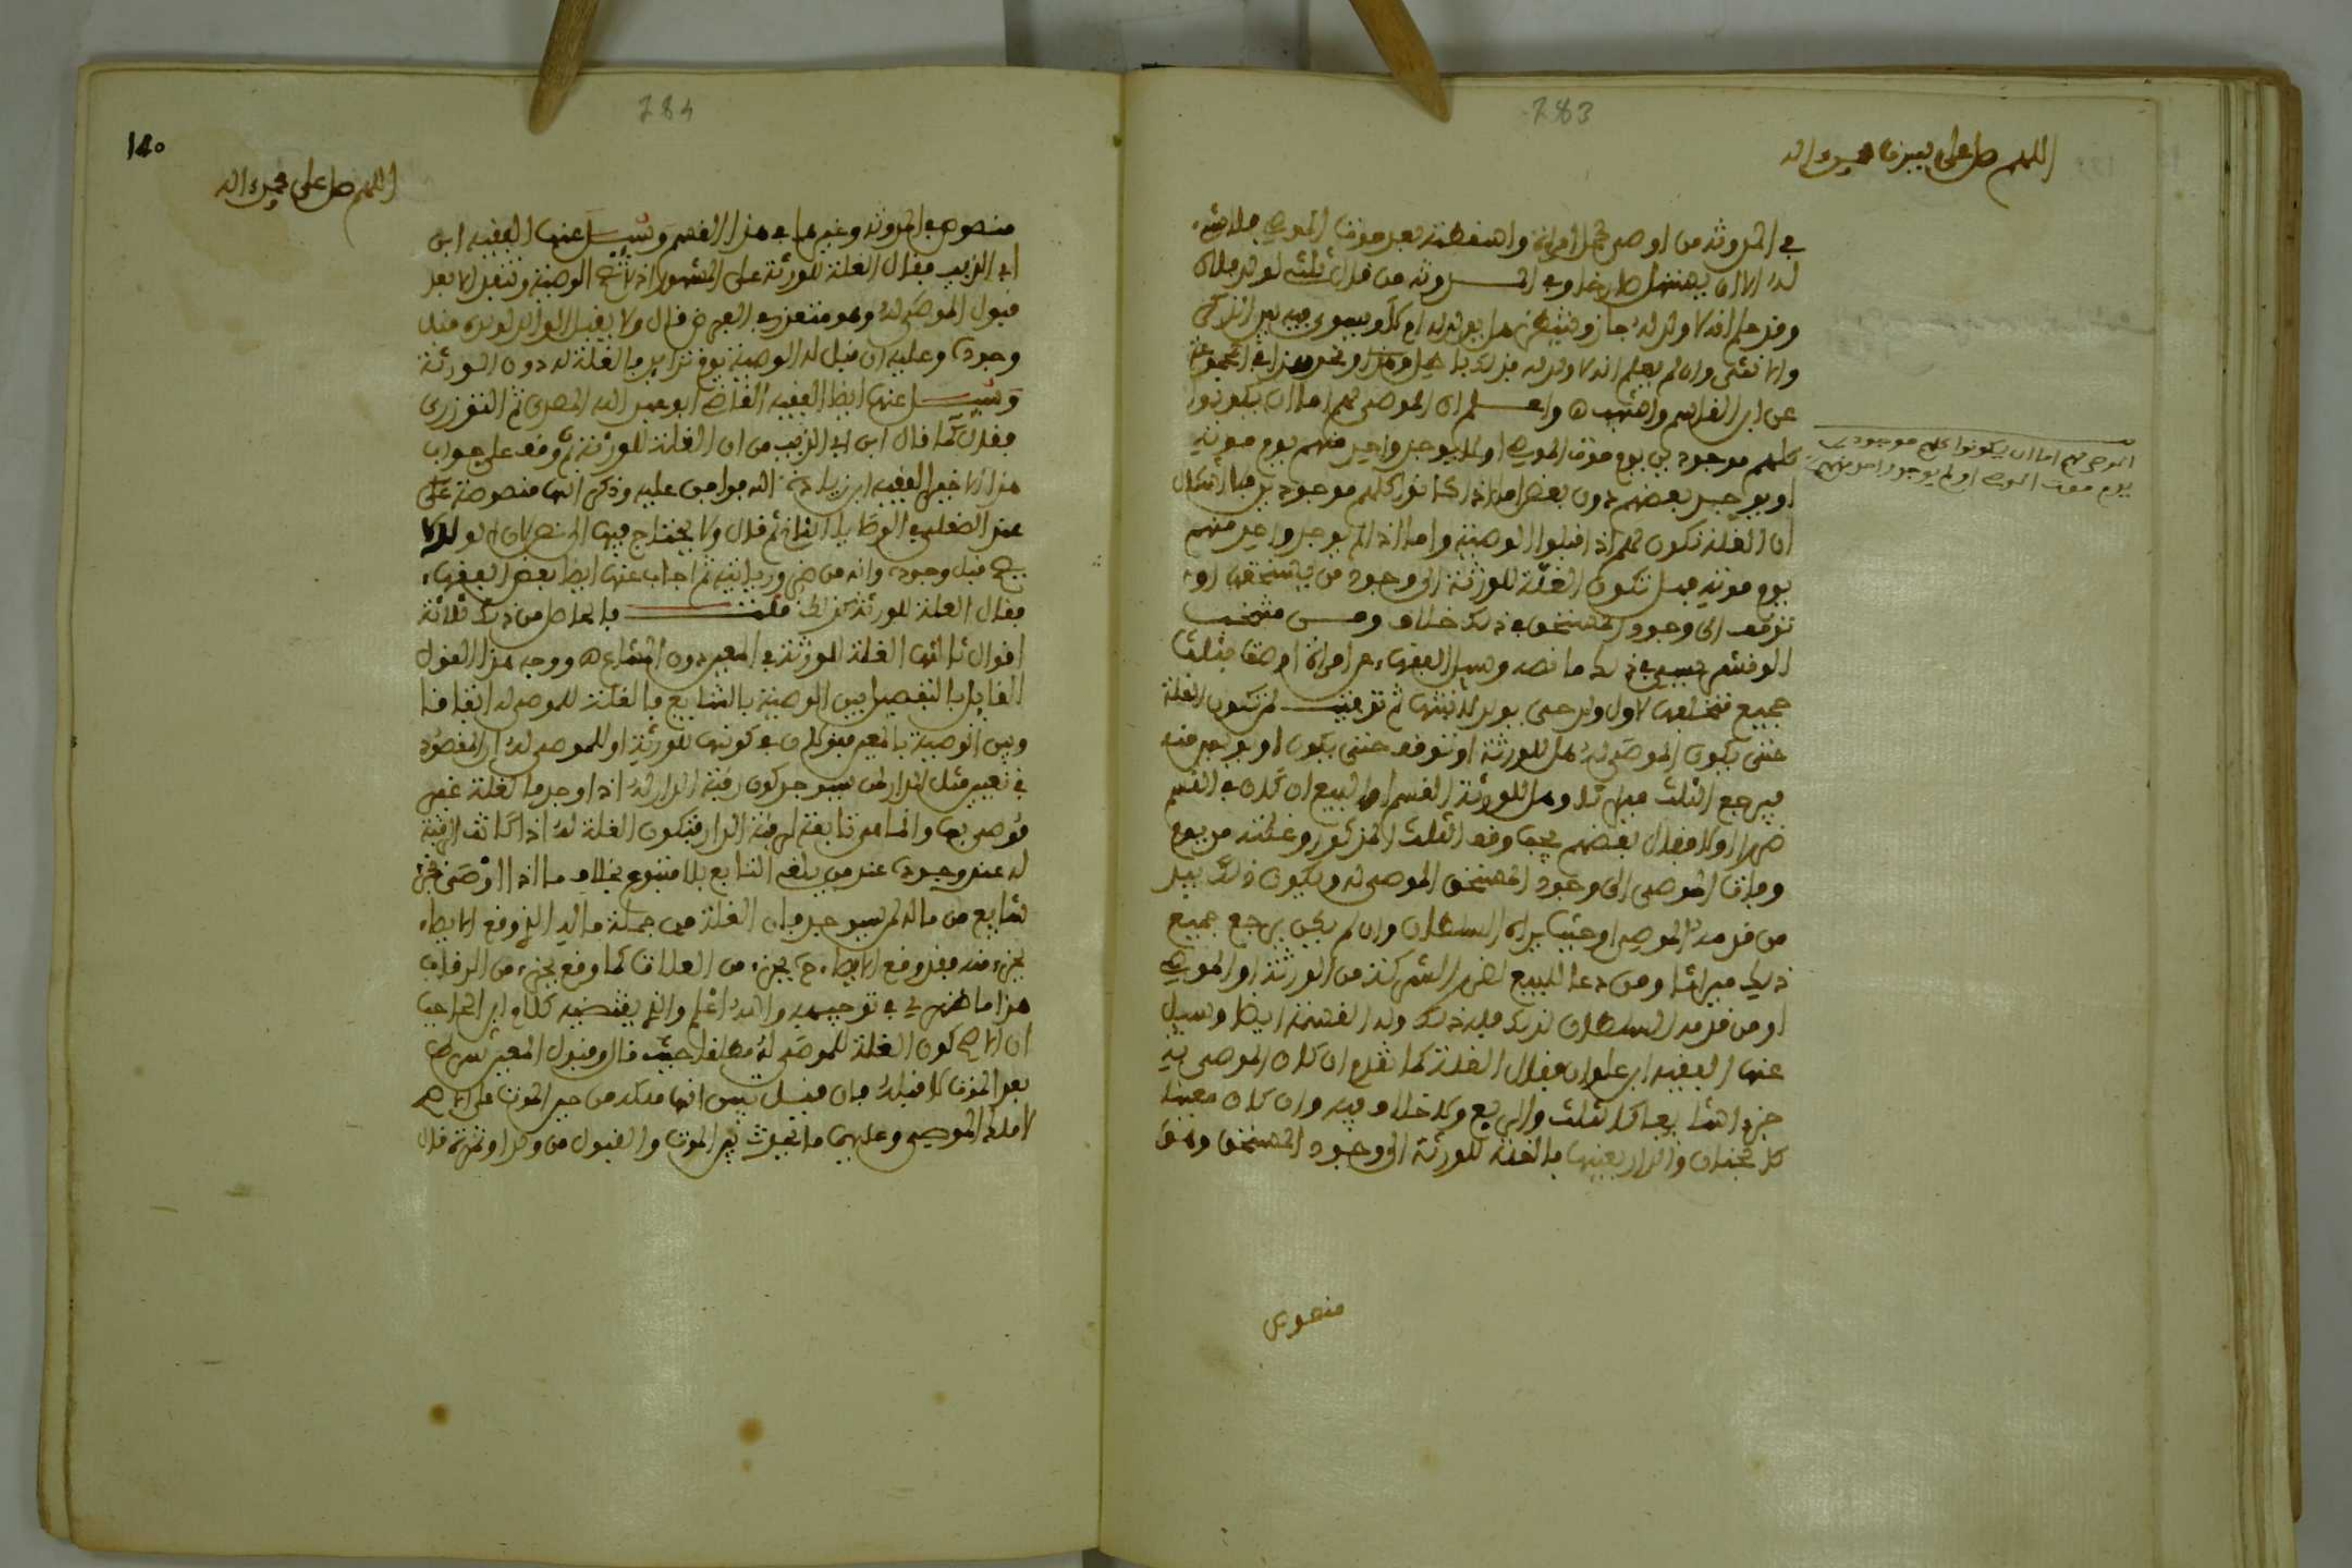 283
اللهم صل على سيدنا محمد واله
في المدونة من اوصى لحمل امرأة واسقطته بعد موت الموصي فلا شيء
له الا ان يستهل صارخا وفي المدونة من قال ثلثي لولد فلان
وقد علم انه لا ولد له جاز وينتظر هل يولد له ام لا ويسوى فيه بين الذكر
والانثى وان لم يعلم انه لا ولد له فذلك باطل ونحو هذا في المجموعة
عن ابن القاسم واشهب واعلم ان الموصى لهم اما ان يكونوا
كلهم موجودين يوم موت الموصي او لا يوجد واحد منهم يوم موته
او يوجد بعضهم دون بعض اما اذا كانوا كلهم موجودين فلا اشكال
ان الغلة تكون لهم اذا قبلوا الوصية واما اذا لم يوجد واحد منهم
يوم موته فهل تكون الغلة للورثة الى وجود من يستحقها او
توقف الى وجود المستحق في ذلك خلاف ومن منتخب
الونشريسي في ذلك ما نصه وسئل الفقهاء عن امرأة اوصت بثلث
جميع متخلفها لاول ولد حتى يولد لابنتها ثم توفيت لمن تكون الغلة
حتى يكون الموصى له هل للورثة او توقف حتى يكون او يويس منه
فيرجع الثلث ميراثا وهل للورثة القسم او البيع ان كان في القسم
ضررا او لا فقال بعضهم يجب وقف الثلث المذكور وغلته من يوم
وفات الموصي الى وجود المستحق الموصى له ويكون ذلك بيد
من قدمه الموصي او حيث يراه السلطان وان لم يكن يرجع جميع
ذلك ميراثا ومن دعا للبيع لضرر الشركة من الورثة او الموصي
او من قدمه السلطان لذلك فله ذلك وله القسمة ايضا وسئل
عنها الفقيه ابن علوان فقال الغلة كما تقدم ان كان الموصى به
جزءا شايعا كالثلث والربع ولا خلاف فيه وان كان معينا
كالجنان والدار بعينها فالغلة للورثة الى وجود المستحق وهو
الموصى لهم اما ان يكونوا كلهم موجودين
يوم موت الموصي او لم يوجد احد منهم
منصوص
284
140
اللهم صل على محمد واله
منصوص في المدونة وغيرها في هذا القسم وسئل عنها الفقيه ابن
ابي الزيب فقال الغلة للورثة على المشهور اذ لا تصح الوصية وتنفذ الا بعد
قبول الموصى له وهو متعذر في الفرض قال ولا يقبل الوالد لولده قبل
وجوده وعليه ان قبل له الوصية يوم تزايد فالغلة له دون الورثة
وسئل عنها ايضا الفقيه القاضي ابو عبد الله المصري ثم التوزري
فقال كما قال ابن ابي الزيب من ان الغلة للورثة ثم وقف على جواب
هذا الاخير الفقيه ابن زيادة الله فوافق عليه وذكر انها منصوصة على
عند الصقلي في الوصايا الثاني ثم قال ولا يحتاج فيها الى نص لان الولد لا
يصح قبل وجوده وانه من ضروريات ثم اجاب عنها ايضا بعض الفقهاء
فقال الغلة للورثة كذلك قلت فالحاصل من ذلك ثلاثة
اقوال ثالثها الغلة للورثة في المعين دون الشايع ووجه هذا القول
القايل بالتفصيل بين الوصية بالشايع فالغلة للموصى له اتفاقا
وبين الوصية بالمعين في كونها للورثة او للموصى له ان المقصود
في تعيين مثل الدار لمن سيوجد كون رقبة الدار له اذا وجد فالغلة غير
موصى بها وانما هي تابعة لرقبة الدار فتكون الغلة له اذا كانت الرقبة
له عند وجوده عند من يلغي التابع بلا متبوع بخلاف ما اذا اوصى بجزء
شايع من ماله لمن سيوجد فان الغلة من جملة ماله الذي وقع الايصاء
بجزء منه فقد وقع الايصاء بجزء من الغلات كما وقع بجزء من الرقاب
هذا ما ظهر لي في توجيهه والله اعلم والذي يقتضيه كلام ابن الحاجب
ان الاصح كون الغلة للموصى له مطلقا حيث قال وقبول المعين شرط
بعد الموت لا قبله فان قبل تبين انها ملكه من حين الموت على الاصح
لا ملك الموصي وعليهما ما يحدث بين الموت والقبول من ولد او ثمرة قال